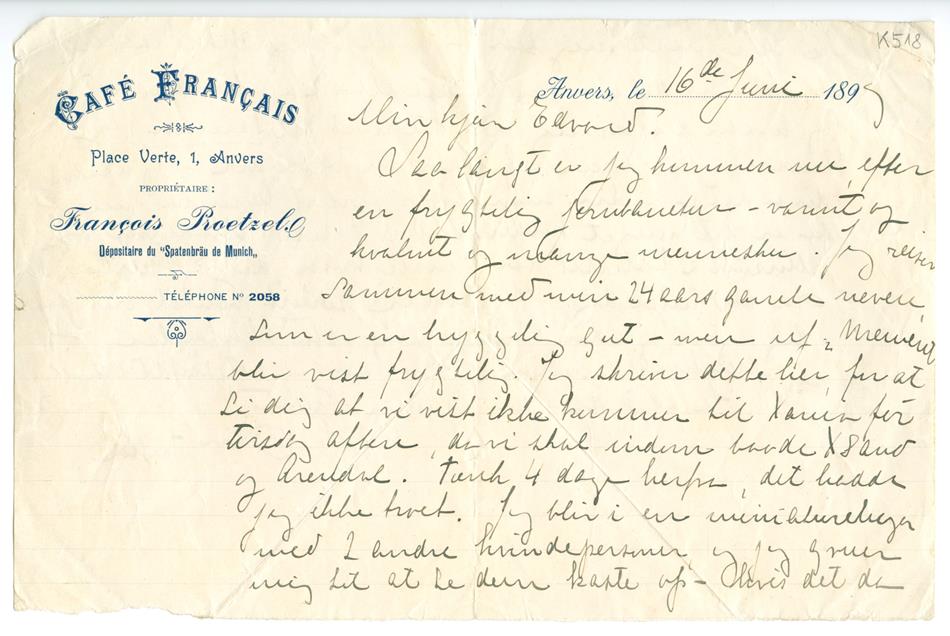 K518
CAFÉ FRANÇAIS
Place Verte, 1, Anvers
PROPRIÉTAIRE :
François Proetzel
Dépositaire du "Spatenbräu de Munich„
TÉLÉPHONE Nº 2058
Anvers, le 16de Juni 189
Min kjære Edvard.
Saa langt er jeg kommen nu, efter
en frygtelig Jernbanetur – varmt og
kvalmt og mange mennesker. Jeg reiser
sammen med min 24 aars gamle nevew
som er en hyggelig gut – men uf
blir vist frygtelig. Jeg skriver dette her, for at
si dig at vi vist ikke kommer til Xania før
tirsdag aften, da vi skal indom baade XSand
og Arendal. Tænk 4 dage herfra, det hadde
jeg ikke troet. Jeg blir i en miniaturelugar
med 2 andre kvindepersoner og jeg gruer
mig til at se dem kaste op – Hvis det da